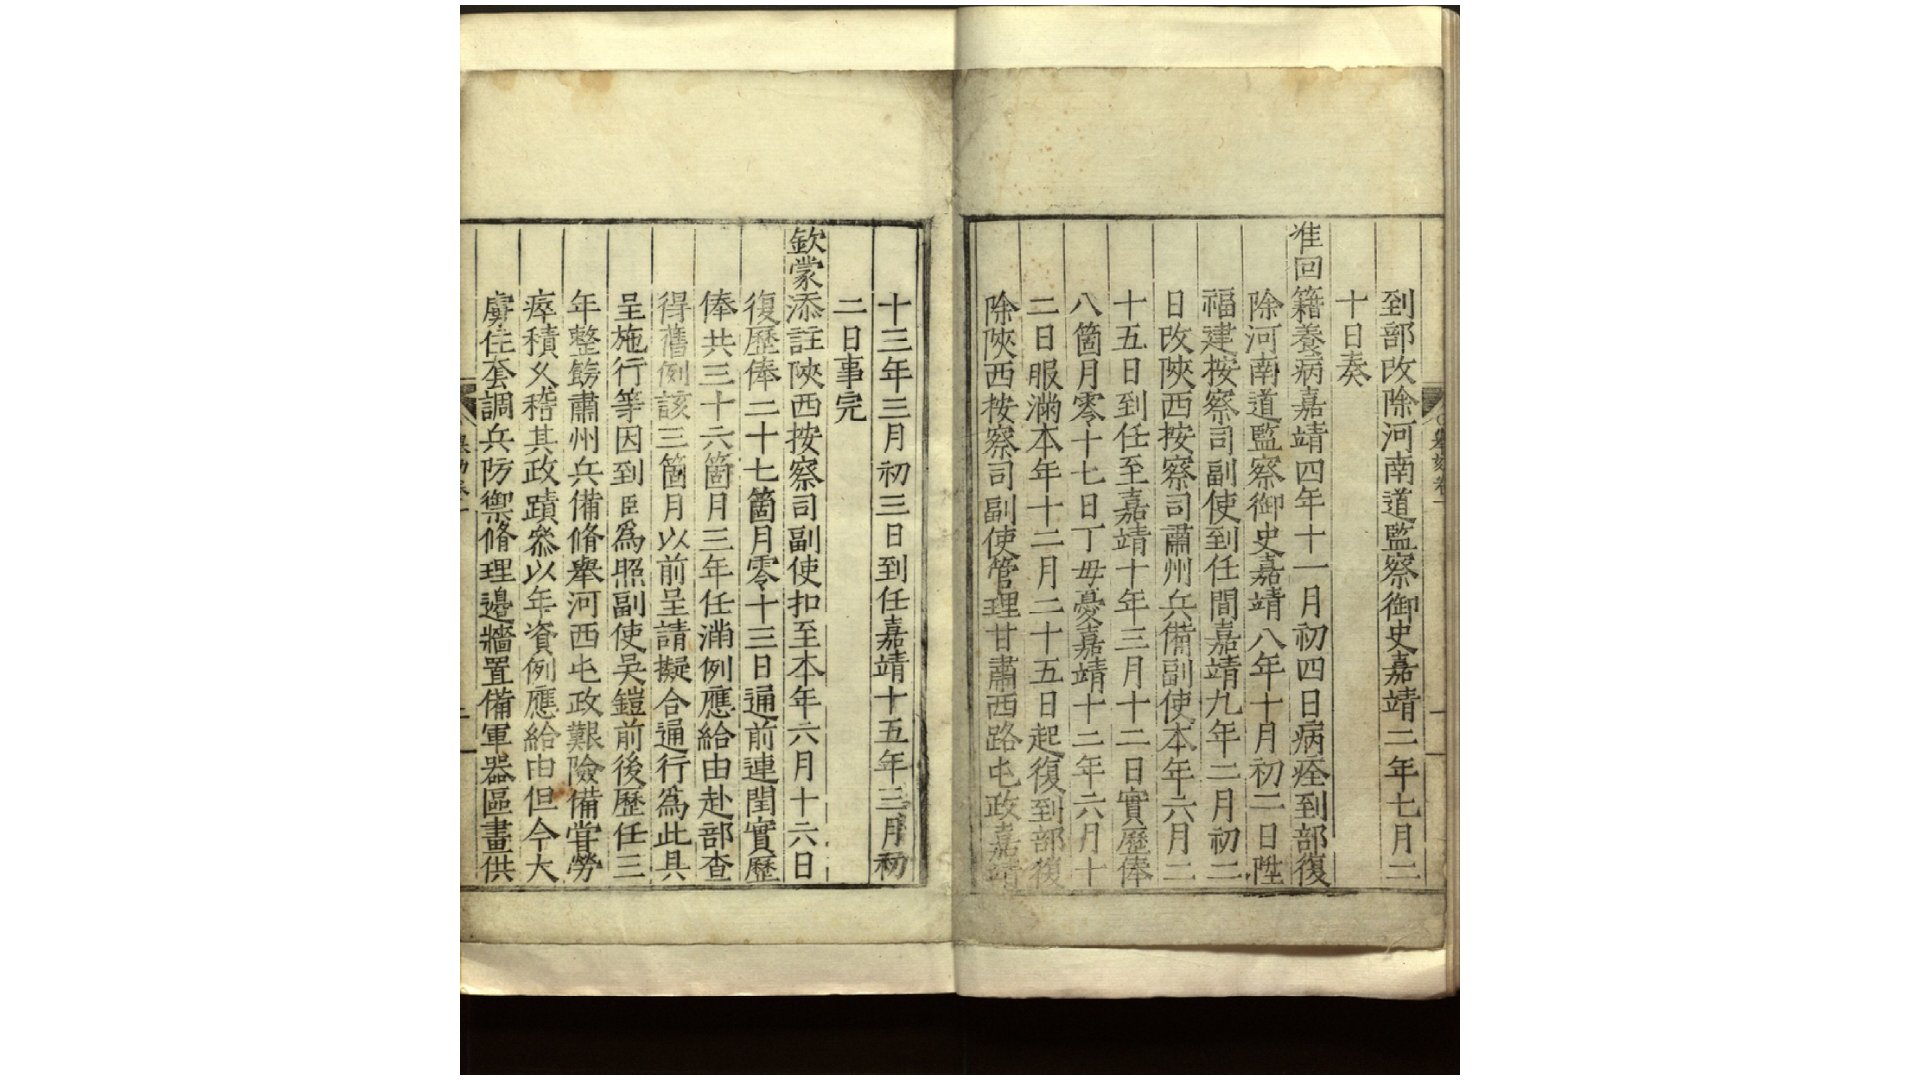 到部改除河南道監察御史嘉靖二年七月二
十日奏
准回籍養病嘉靖四年十一月初四日病痊到部復
除河南道監察御史嘉靖八年十月初二日陞
福建按察司副使到任間嘉靖九年二月初二
日改陝西按察司肅州兵備副使本年六月二
十五日到任至嘉靖十年三月十二日實歷俸
八箇月零十七日丁母憂嘉靖十二年六月十
二日服滿本年十二月二十五日起復到部復
除陝西按察司副使管理甘肅西路屯政嘉靖
十三年三月初三日到任嘉靖十五年三月初
二日事完
欽蒙添註陝西按察司副使扣至本年六月十六日
復歷俸二十七箇月零十三日通前連閏實歷
俸共三十六箇月三年任滿例應給由赴部查
得舊例該三箇月以前呈請擬合通行為此具
呈施行等因到臣為照副使吳鎧前後歷任三
年整飭肅州兵備脩舉河西屯政艱險備嘗勞
瘁積久稽其政蹟叅以年資例應給由但今大
虜住套調兵防禦脩理邊牆置備軍器區畫供